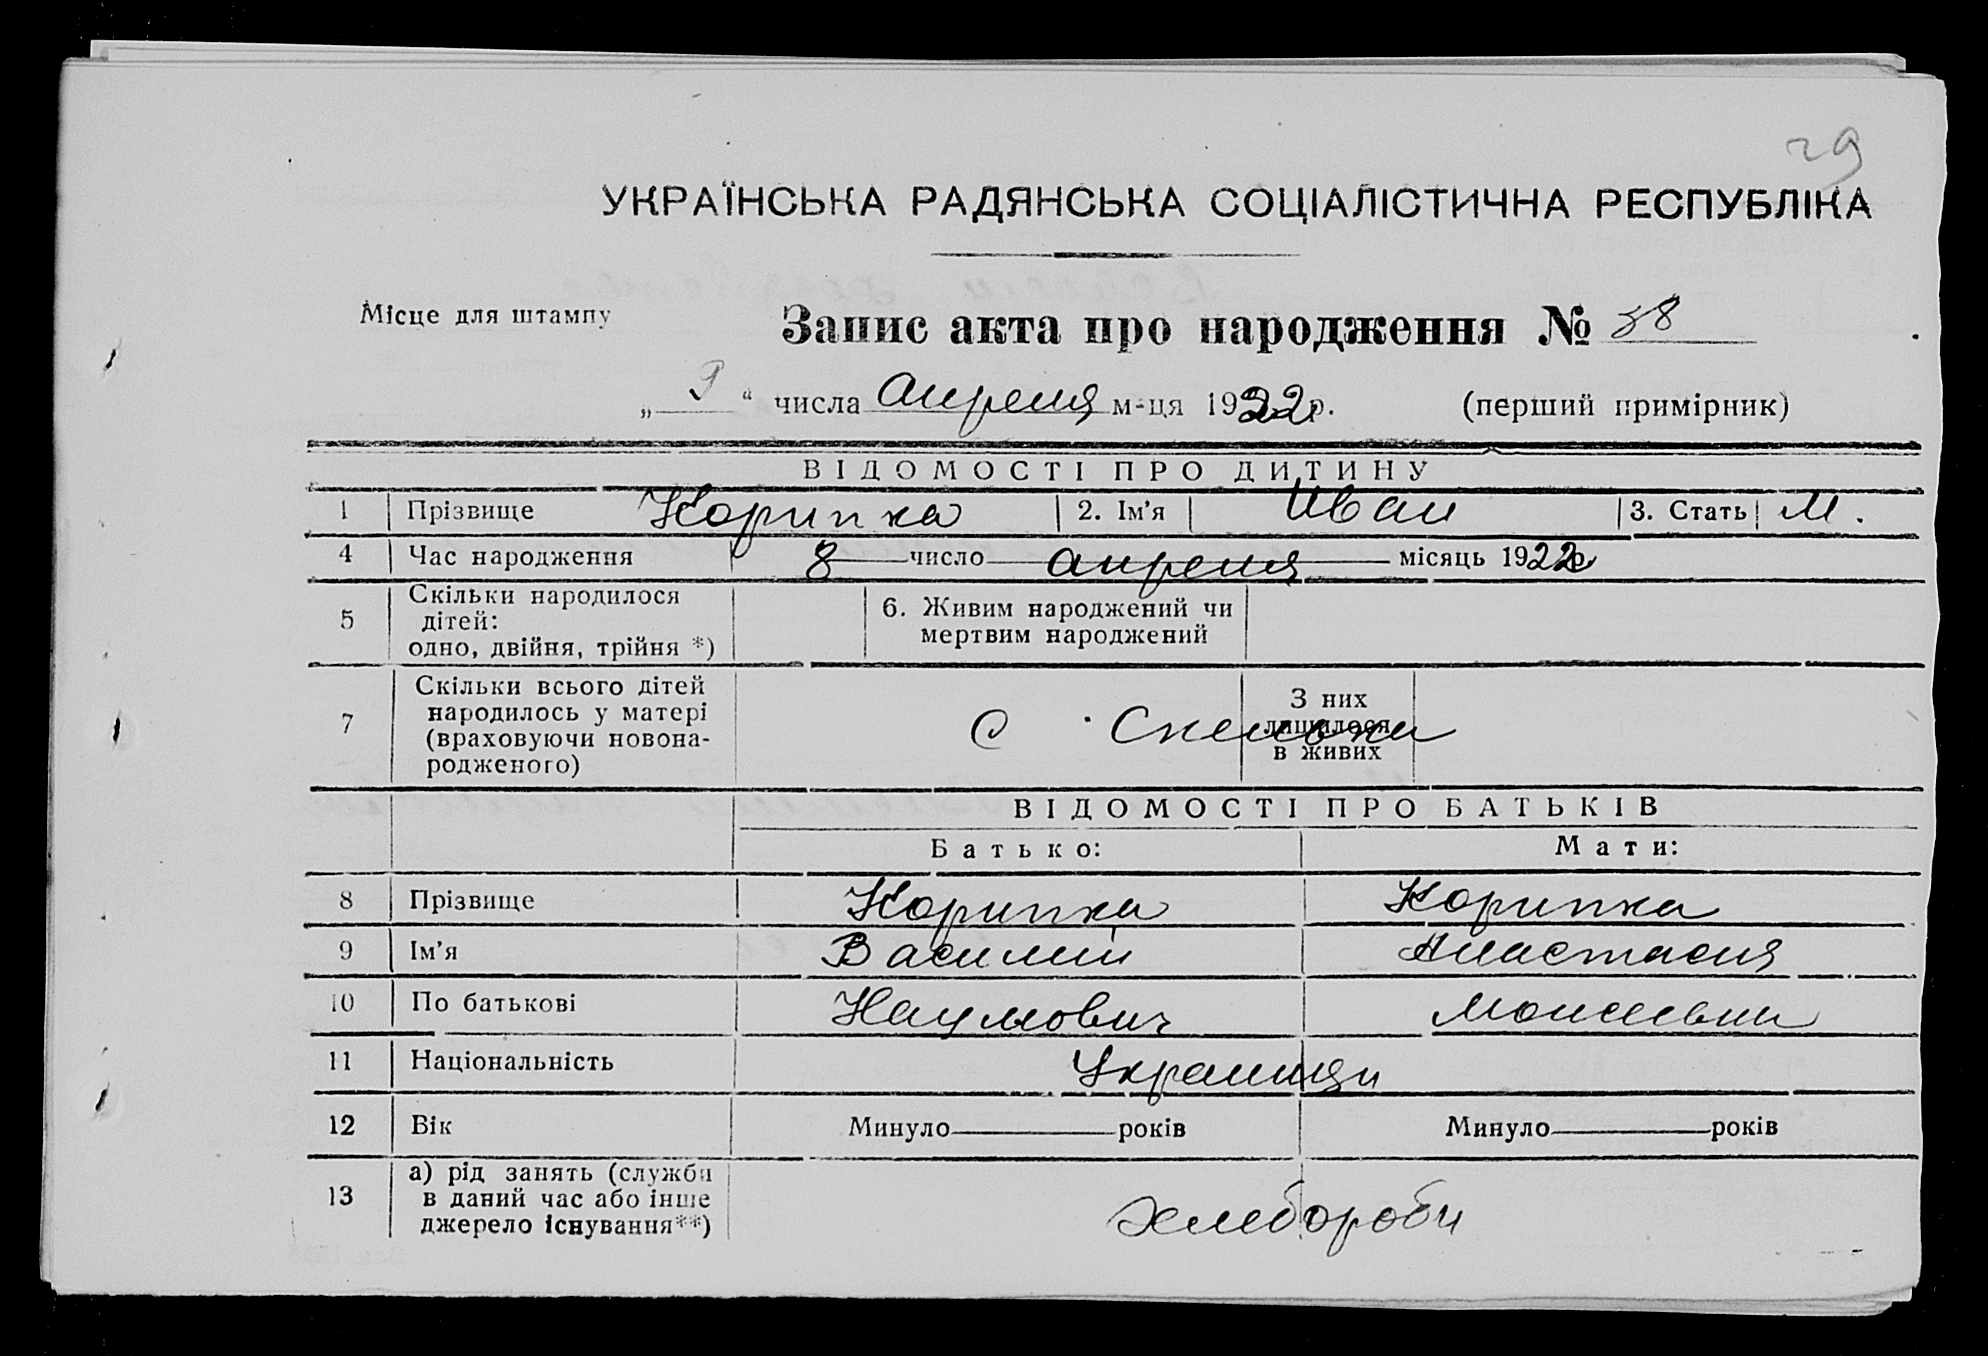 29
УКРАЇНСЬКА РАДЯНСЬКА СОЦІАЛІСТИЧНА РЕСПУБЛІКА
Місце для штампу
Запис акта про народження № 38
„ 9 “ числа Апреля м-ця 1922 р. (перший примірник)
ВІДОМОСТІ ПРО ДИТИНУ
1 Прізвище Корипка 2. Ім’я Иван 3. Стать М.
4 Час народження 8 число апреля місяць 1922
5 Скільки народилося дітей: одно, двійня, трійня *) 6. Живим народжений чи мертвим народжений
7 Скільки всього дітей народилось у матері (враховуючи новонародженого) С. Скельки З них лишилося в живих
ВІДОМОСТІ ПРО БАТЬКІВ
Батько: Мати:
8 Прізвище Корипка Корипка
9 Ім’я Василий Анастасия
10 По батькові Наумович Моисеевна
11 Національність Украинци
12 Вік Минуло років Минуло років
13 а) рід занять (служби в даний час або інше джерело існування**) хлебороби